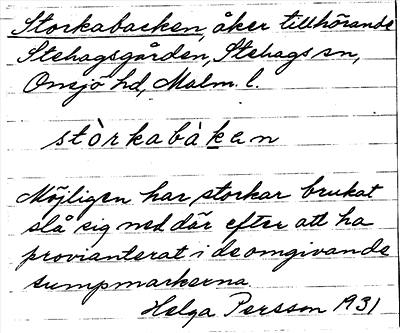 Storkabacken, åker tillhörande
Stehagsgården, Stehags sn,
Onsjö hd, Malm. l.
stòrkabàḵen
Möjligen har storkar brukat
slå sig ned där efter att ha
provianterat i de omgivande
sumpmarkerna.
Helga Persson 1931